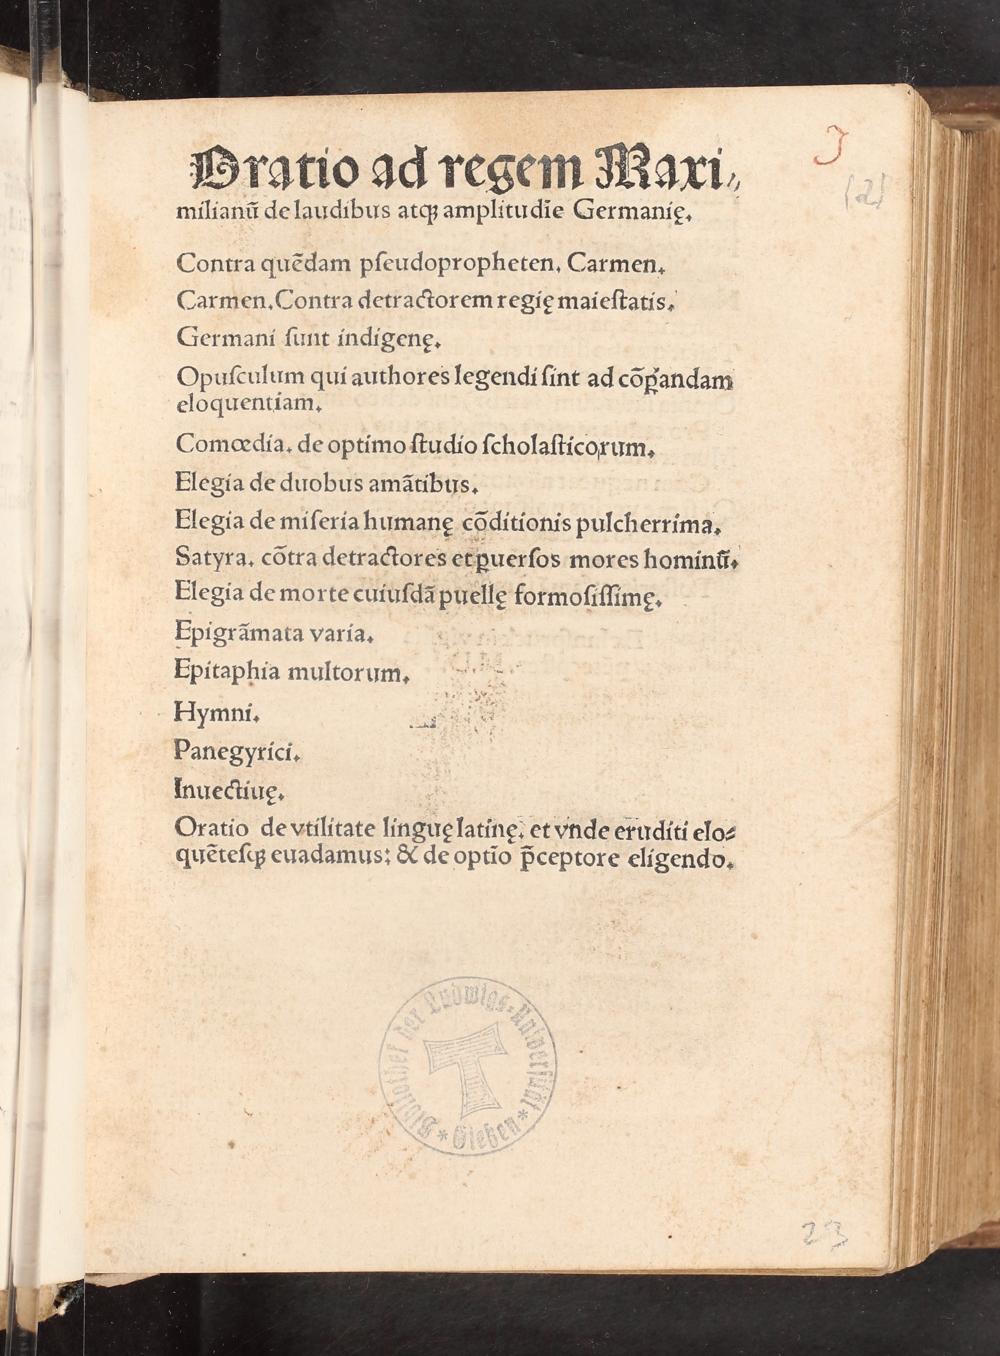 Oratio ad regem Maxi⸗
milianū de laudibus atqꝫ amplitudīe Germanię.
Contra quēdam pſeudopropheten. Carmen.
Carmen. Contra detractorem regię maieſtatis.
Germani ſunt indigenę.
Opuſculum qui authores legendi ſint ad cōꝑandam
eloquentiam.
Comœdia. de optimo ſtudio ſcholaſticorum.
Elegia de duobus amātibus.
Elegia de miſeria humanę cōditionis pulcherrima.
Satyra. cōtra detractores et ꝑuerſos mores hominū.
Elegia de morte cuiuſdā puellę formoſiſſimę.
Epigrāmata varia.
Epitaphia multorum.
Hymni.
Panegyrici.
Inuectiuę.
Oratio de vtilitate linguę latinę. et vnde eruditi elo⸗
quēteſqꝫ euadamus: & de optīo p̄ceptore eligendo.
Bibliothek der Ludwigs-Universität
* Gießen *
(2)
23